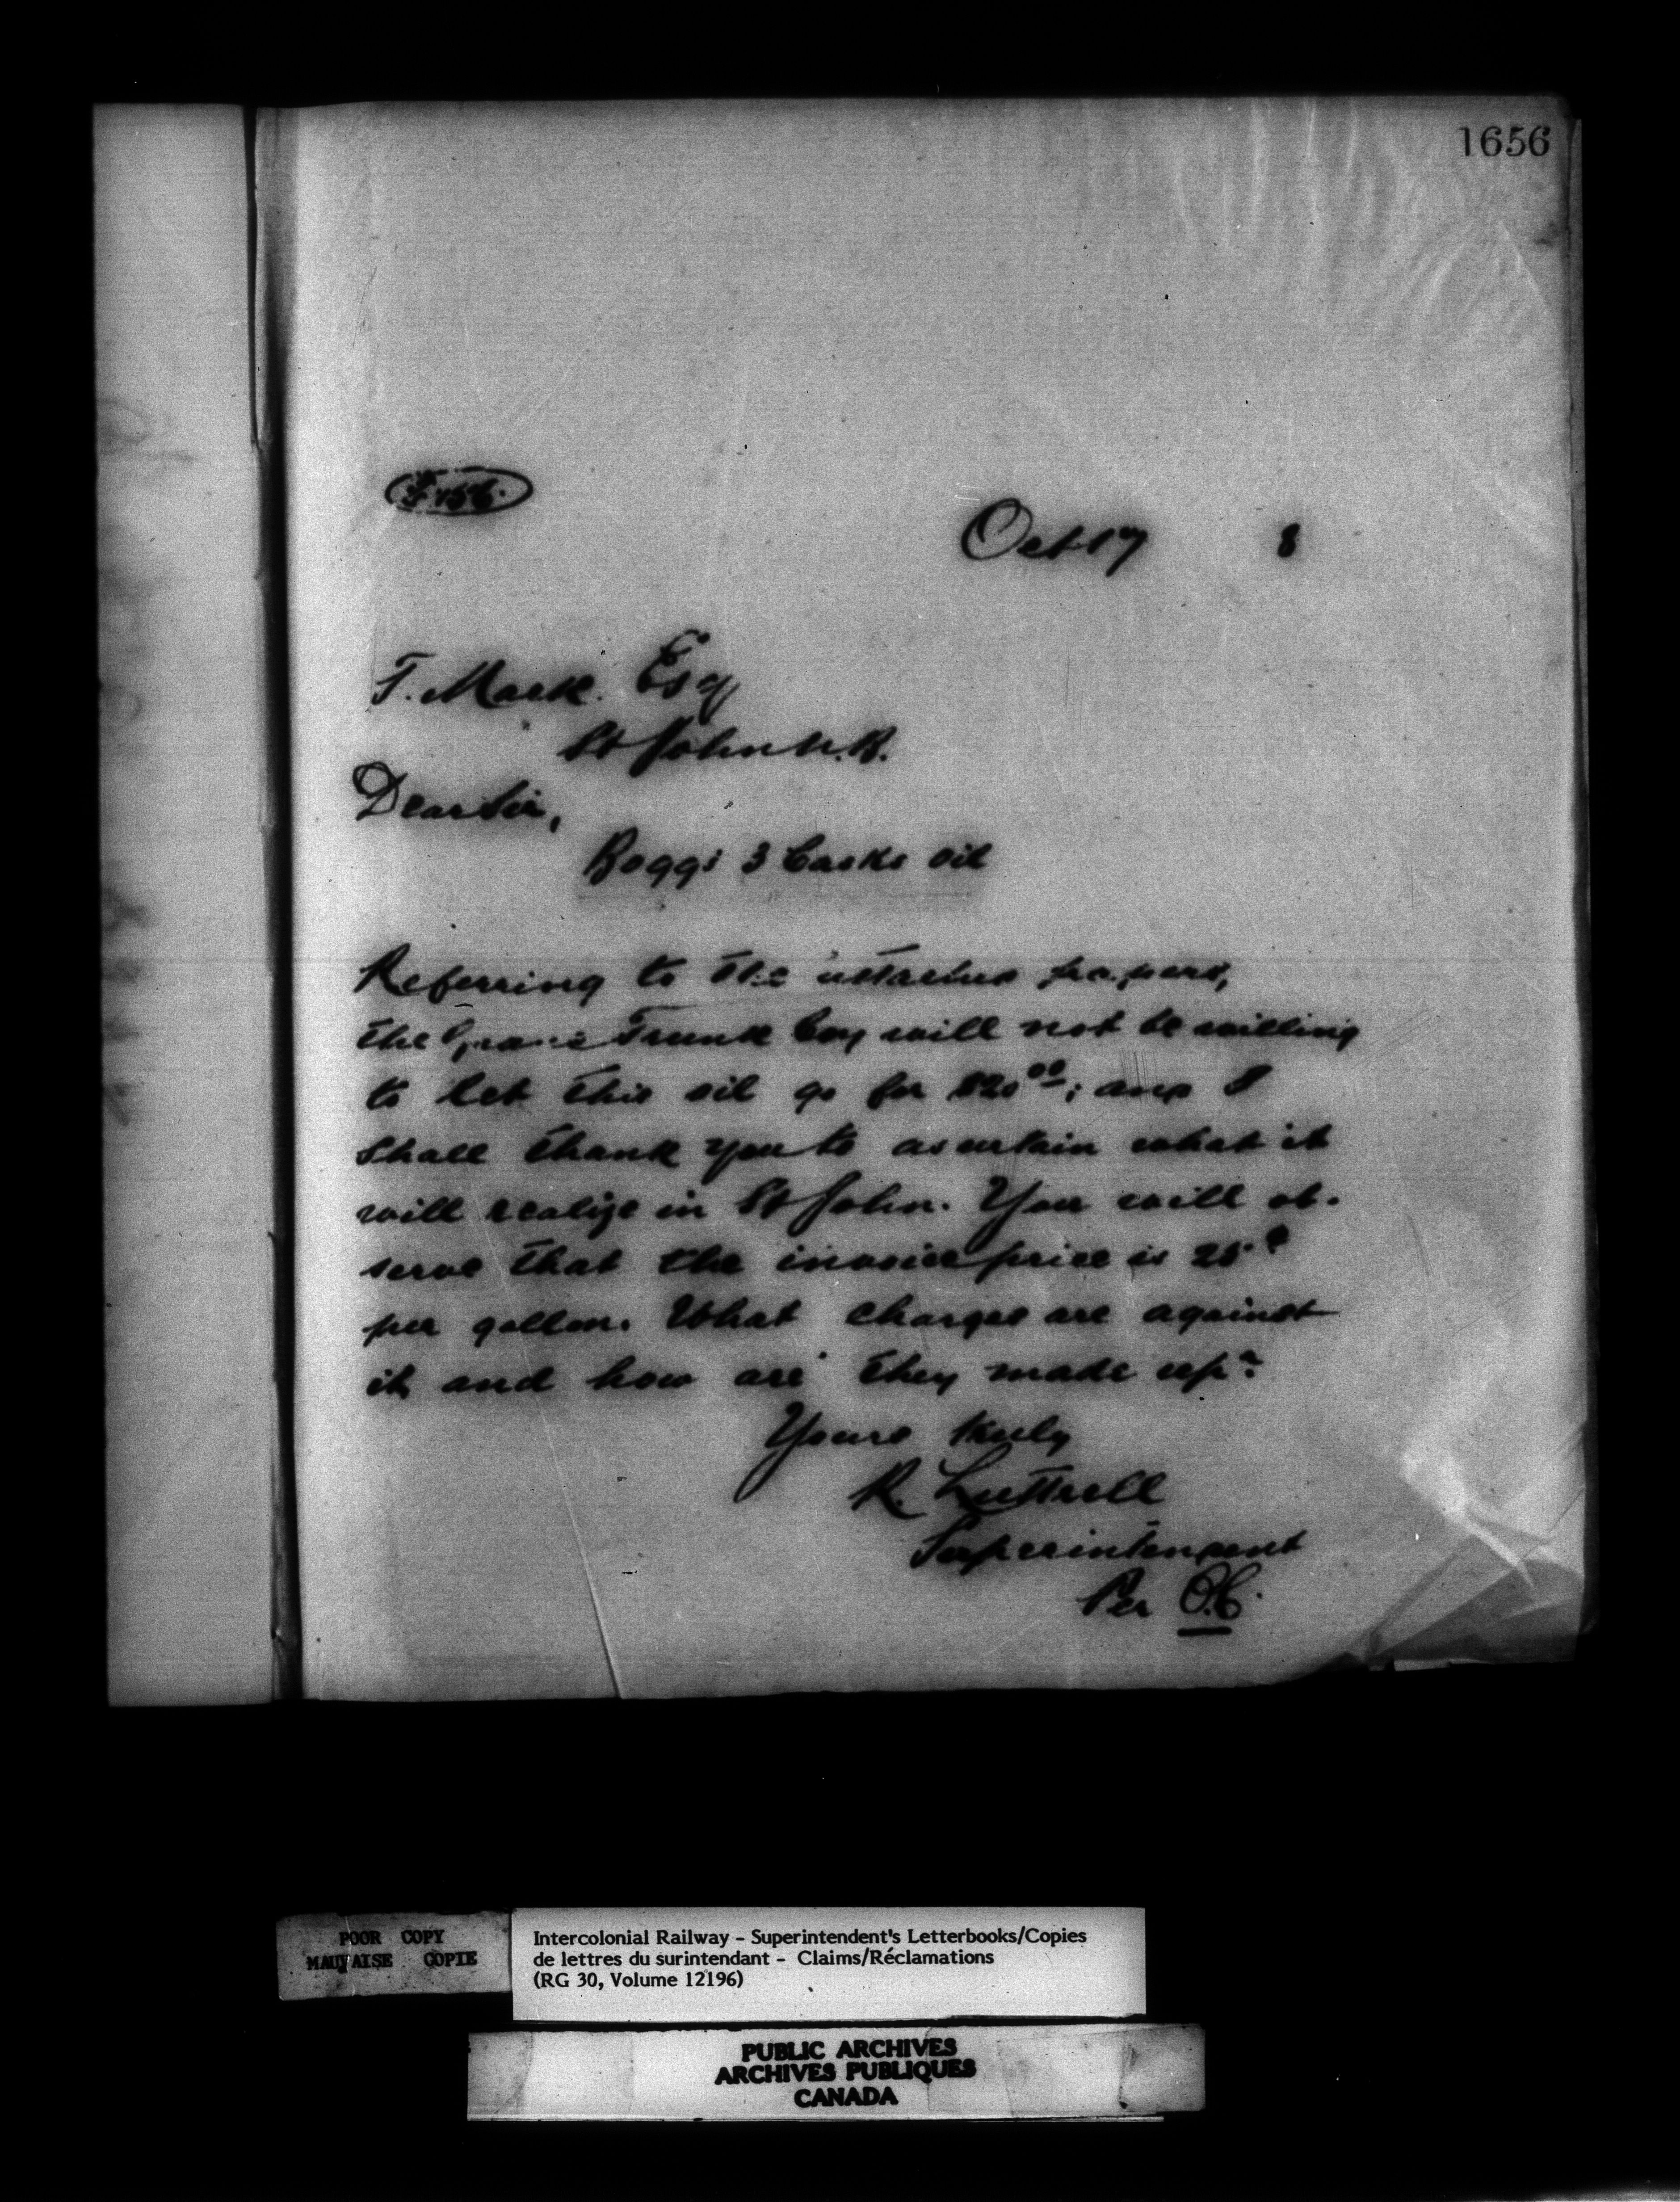 1656
Oct 17 8
T. Mack. Esq
St John N.B.
Dear Sir,
Boggs 3 Casks oil
Referring to the attached papers,
the Grand Trunk Coy will not be willing
to let this oil go for $20 00; and I
shall thank you to ascertain what it
will realize in St John. You will ob-
serve that the invoice price is 25 ¢
per gallon. What charges are against
it and how are they made up?
Yours truly
R. Luttrell
Superintendent
Per O.C.
POOR COPY
MAUVAISE COPIE
Intercolonial Railway - Superintendent's Letterbooks/Copies
de lettres du surintendant - Claims/Réclamations
(RG 30, Volume 12196)
PUBLIC ARCHIVES
ARCHIVES PUBLIQUES
CANADA